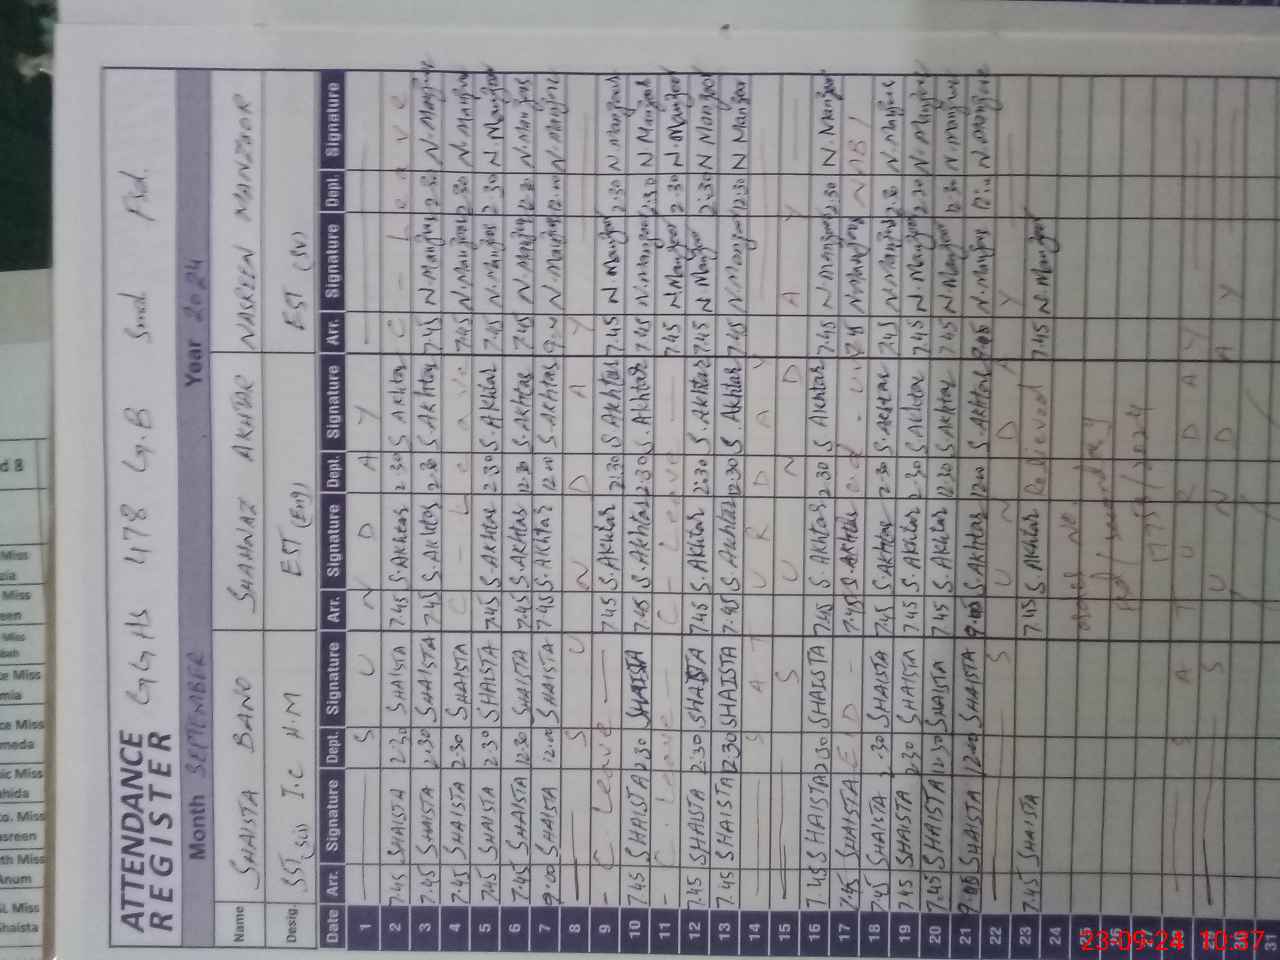 ATTENDANCE
REGISTER GGHS 478 G.B Smd Fsd.
Month SEPTEMBER Year 2024
Name SHAISTA BANO SHAHNAZ AKHTAR NASREEN MANZOOR
Desig. SST (Sci) I.C H.M EST (Eng) EST (SV)
Date Arr. Signature Dept. Signature Arr. Signature Dept. Signature Arr. Signature Dept. Signature
1 S U N D A Y
2 7.45 SHAISTA 2.30 SHAISTA 7.45 S.Akhtar 2.30 S Akhtar C - Leave
3 7.45 SHAISTA 2.30 SHAISTA 7.45 S.Akhtar 2.30 S Akhtar 7.45 N.Manzoor 2.30 N.Manzoor
4 7.45 SHAISTA 2.30 SHAISTA C - Leave 7.45 N.Manzoor 2.30 N.Manzoor
5 7.45 SHAISTA 2.30 SHAISTA 7.45 S.Akhtar 2.30 S.Akhtar 7.45 N.Manzoor 2.30 N.Manzoor
6 7.45 SHAISTA 12.30 SHAISTA 7.45 S.Akhtar 12.30 S.Akhtar 7.45 N.Manzoor 12.30 N.Manzoor
7 9.00 SHAISTA 12.00 SHAISTA 7.45 S.Akhtar 12.00 S.Akhtar N.Manzoor 12.00 N.Manzoor
8 S U N D A Y
9 - C Leave - 7.45 S.Akhtar 2:30 S Akhtar 7.45 N Manzoor 2:30 N Manzoor
10 7.45 SHAISTA 2.30 SHAISTA 7.45 S.Akhtar 2.30 S.Akhtar 7.45 N.Manzoor 2:30 N Manzoor
11 - C. Leave - C - Leave - 7.45 N Manzoor 2.30 N.Manzoor
12 7.45 SHAISTA 2:30 SHAISTA 7.45 S.Akhtar 2:30 S.Akhtar 7.45 N Manzoor 2:30 N Manzoor
13 7.45 SHAISTA 12.30 SHAISTA 7.45 S.Akhtar 12.30 S Akhtar 7.45 N.Manzoor 12:30 N Manzoor
14 S A T U R D A Y
15 S U N D A Y
16 7.45 SHAISTA 2.30 SHAISTA 7.45 S.Akhtar 2.30 S Akhtar 7.45 N Manzoor 2.30 N.Manzoor
17 7.45 SHAISTA E I D 7.45 S.Akhtar 7.45 N.Manzoor
18 7.45 SHAISTA 2.30 SHAISTA 7.45 S.Akhtar 2.30 S.Akhtar 7.45 N.Manzoor 2.30 N.Manzoor
19 7.45 SHAISTA 2.30 SHAISTA 7.45 S.Akhtar 2.30 S.Akhtar 7.45 N.Manzoor 2.30 N.Manzoor
20 7.45 SHAISTA 12.30 SHAISTA 7.45 S.Akhtar 12.30 S.Akhtar 7.45 N.Manzoor 12.30 N.Manzoor
21 9.00 SHAISTA 12.00 SHAISTA 9.00 S.Akhtar 12.00 S.Akhtar N.Manzoor N.Manzoor
22 S U N D A Y
23 7.45 SHAISTA 7.45 S.Akhtar Relieved 7.45 N.Manzoor
24
25 order No
26
27 /2024
28 S A T U R D A Y
29 S U N D A Y
30
31
23-09-24 10:37